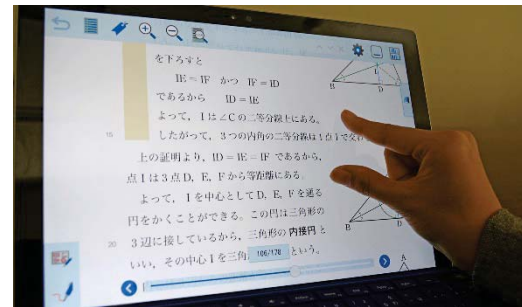 を下ろすと
IE＝IF かつ IF＝ID
であるから ID＝IE
よって，Iは∠Cの二等分線上にある。
15 したがって，3つの内角の二等分線は1点Iで交わ
上の証明より，ID＝IE＝IF であるから，
点Iは3点D，E，Fから等距離にある。
よって，Iを中心としてD，E，Fを通る
円をかくことができる。この円は三角形の
20 3辺に接しているから，三角形の内接円と
いい，その中心Iを三角 という。
106/178
B
D
B
D
A